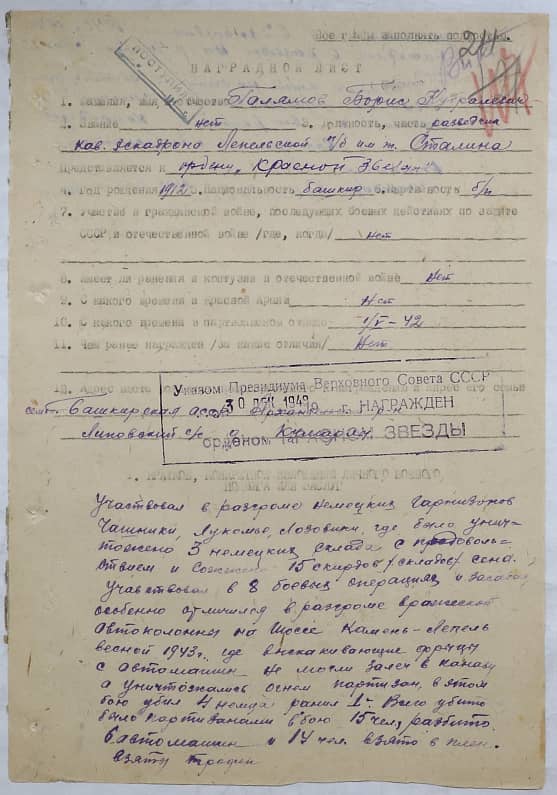 Все графы заполнять полностью.
НАГРАДНОЙ ЛИСТ
ПОСТУПИЛ
1. Фамилия, имя и отчество Галямов Борис
2. Звание нет 3. Должность, часть разведчик
кав. эскадрона Лепельской п/б им т. Сталина
Представляется к ордену "Красной Звезды"
4. Год рождения 1912 5. Национальность башкир 6. Партийность б/п
7. Участие в гражданской войне, последующих боевых действиях по защите
СССР и отечественной войне /где, когда/ Нет
8. Имеет ли ранения и контузии в отечественной войне Нет
9. С какого времени в Красной Армии Нет
10. С какого времени в партизанском отряде 1/V-42
11. Чем ранее награжден /за какие отличия/ Нет
12. Адрес и адрес его семьи
Указом Президиума Верховного Совета СССР
30 ДЕК 1948 г. НАГРАЖДЕН
орденом КРАСНОЙ ЗВЕЗДЫ
Башкирская асср
Липовский с/с д.
КРАТКОЕ, КОНКРЕТНОЕ ИЗЛОЖЕНИЕ ЛИЧНОГО БОЕВОГО
ПОДВИГА ИЛИ ЗАСЛУГ
Участвовал в разгроме немецких гарнизонов
Чашники, Лукомье, Лозовики, где было унич-
тожено 3 немецких склада с продоволь-
ствием и сожжено 15 скирдов /складов/ сена.
Участвовал в 8 боевых операциях и засадах
особенно отличился в разгроме вражеской
автоколонны на шоссе Камень-Лепель
весной 1943г. где выскакивающие фрицы
с автомашин не могли залеч в канавы
а уничтожались огнем партизан, в этом
бою убил 4 немца ранил 1. Всего убито
было партизанами в бою 15 чел, разбито
6 автомашин и 14 чел. взято в плен.
взяты трофеи